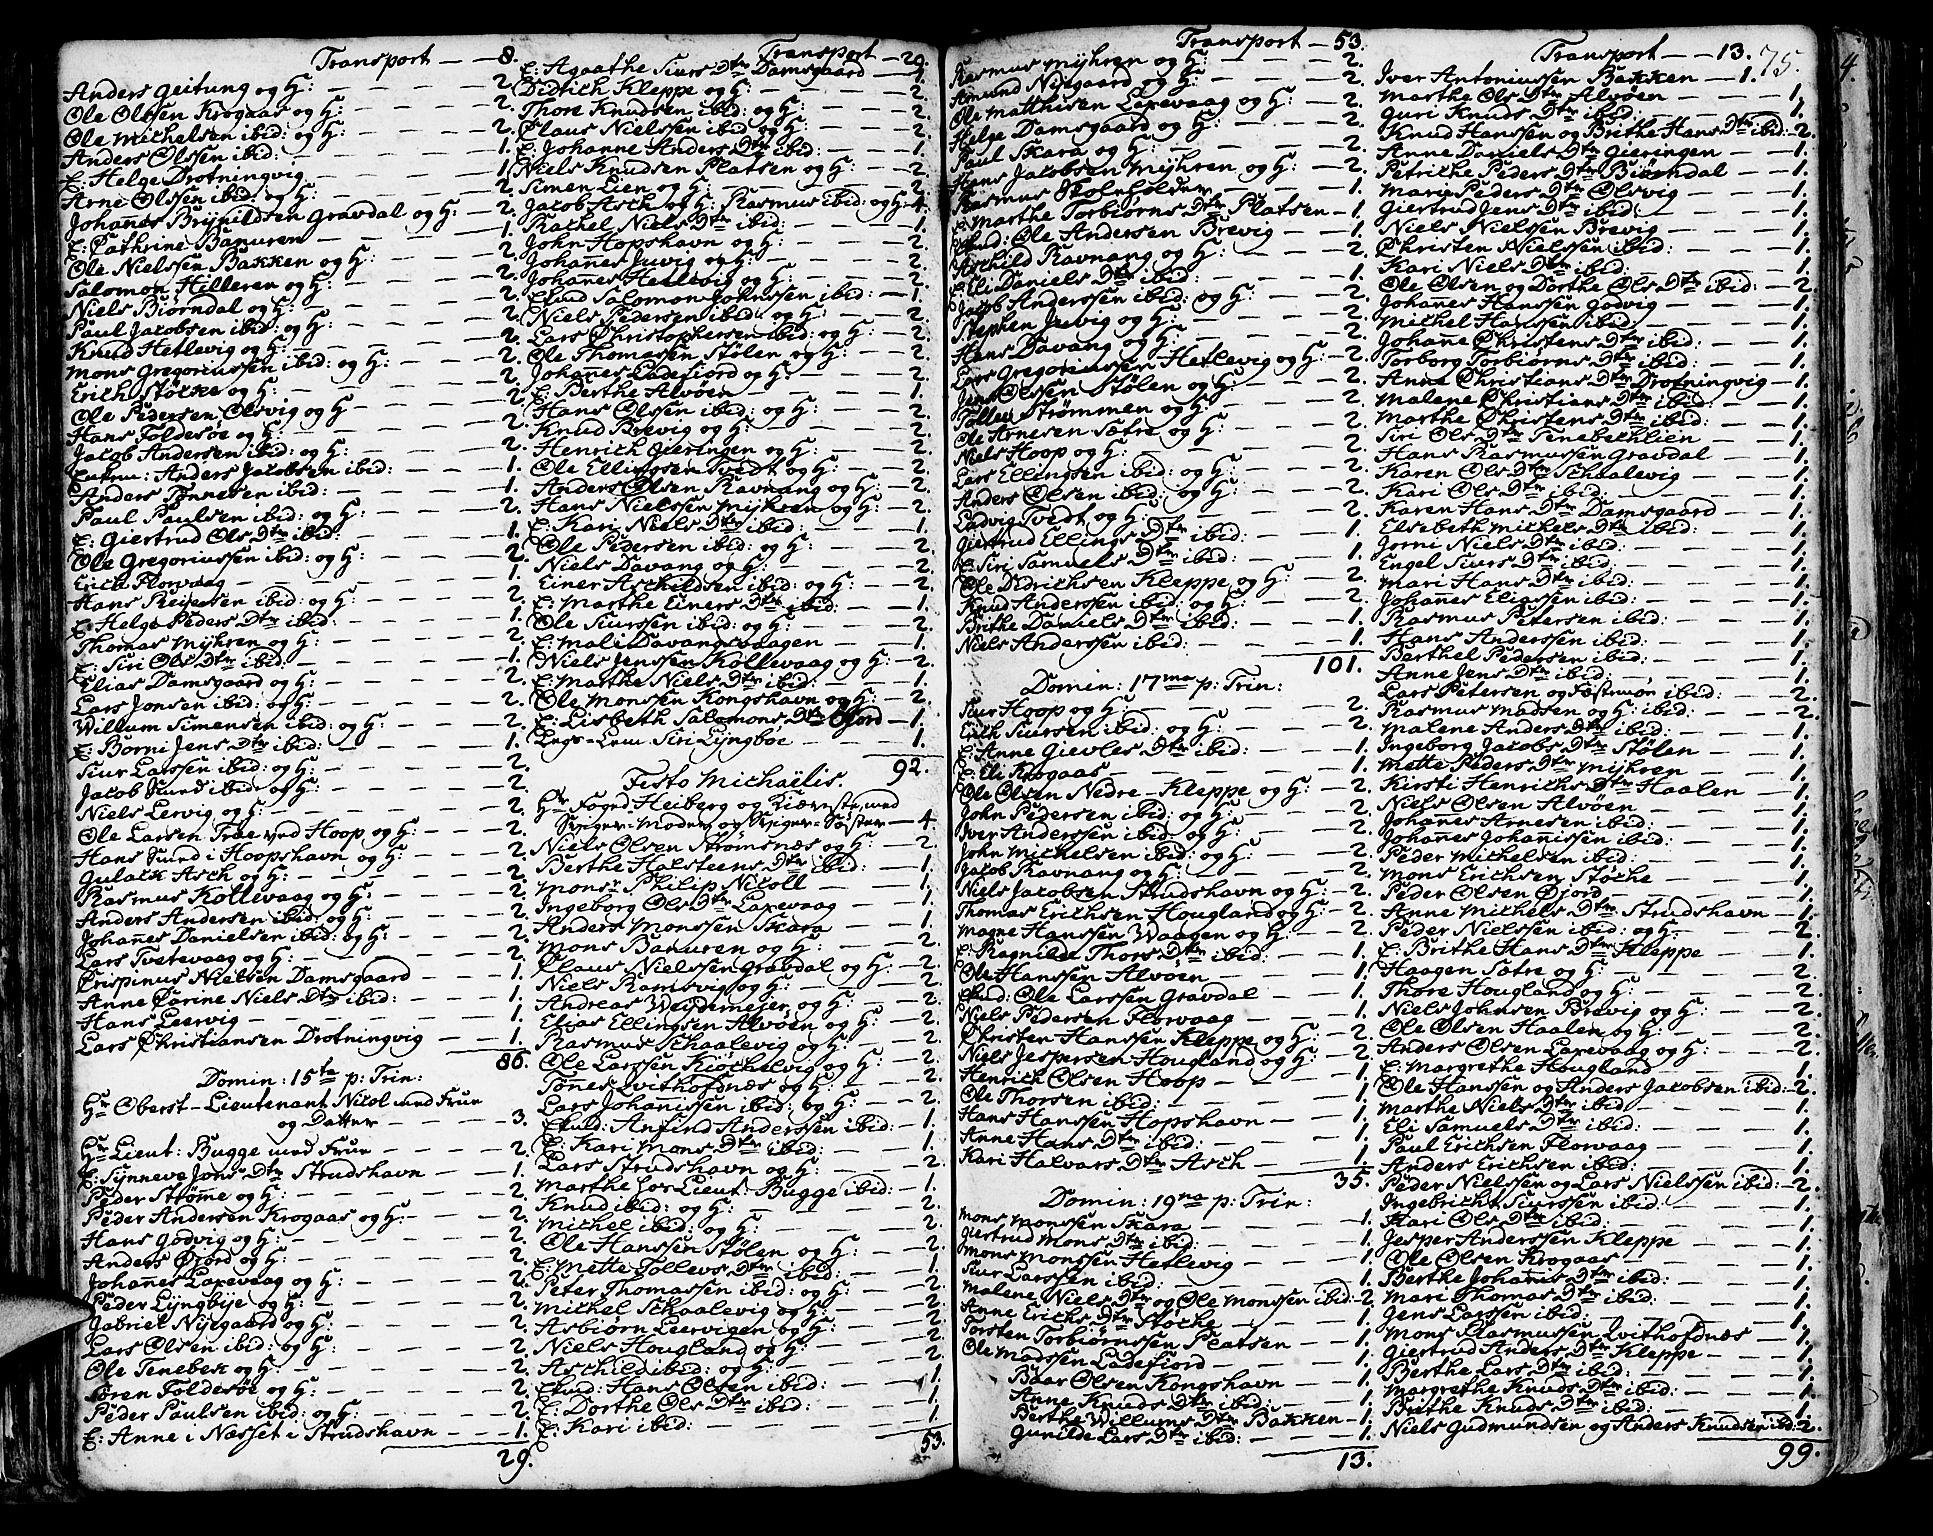 Transport — 8.
Anders Geitung og H: — 2.
Ole Olssen Krogaas og H: — 2.
Ole Michelsen ibid: og H: — 2.
Anders Olssen ibid: — 1.
E: Helge Drotningvig — 1.
Arne Olssen ibid: og H: — 2.
Johañes Brynildsen Gravdal og H: — 2.
E: Cathrine Banuren — 1.
Ole Nielssen Bakken og H: — 2.
Salomon Hilleren og H: — 2.
Niels Biørndal og H: — 2.
Paul Jacobsen ibid: og H: — 2.
Knud Hetlevig og H: — 2.
Mons Gregoriussen ibid: og H: — 2.
Erich Støcke og H: — 2.
Ole Pedersen Olsvig og H — 2.
Hans Foldesøe og H: — 2.
Jacob Andersen ibid: og H: — 2.
Anders Jacobsen ibid: — 1.
Anders Tønnesen ibid: — 1.
Paul Paulsen ibid: og H: — 2.
E: Giertrud Ols Dtr ibid: — 1.
Ole Gregoriussen ibid: og H: — 2.
Erich Florvaag — 1.
Hans Reiersen ibid: og H: — 2.
E: Helge Peders Dtr ibid: — 1.
Thomas Mÿhren og H: — 2.
E: Siri Ols Dtr ibid: — 1.
Elias Damsgaard og H: — 2.
Lars Jonsen ibid: og H: — 2.
Willum Simensen ibid: og H: — 2.
E: Borni Jens Dtr ibid: — 1.
Siur Larssen ibid: og H: — 2.
Jacob Sund ibid: og H: — 2.
Niels Lervig og H: — 2.
Ole Larsen Træe ved Hoop og H: — 2.
Hans Sund i Hoopshavn og H: — 2.
Gulack Asch og H: — 2.
Rasmus Kollevaag og H: — 2.
Anders Andersen ibid: og H: — 2.
Johañes Danielsen ibid: og H: — 2.
Lars Tvetevaag og H: — 2.
Crispinus Nielsen Damsgaard — 1.
Anne Carine Niels Dtr ibid: — 1.
Hans Leervig — 1.
Lars Christiansen Drotningvig — 1.
86.
Domin: 15ta p: Trin:
Hr Oberst-Lieutenant Nicol med Frue
og Datter — 3.
Hr Lieut: Bugge med Frue — 2.
E: Synneve Jons Dtr Strudshavn — 1.
Peder Strøme og H: — 2.
Peder Andersen Krogaas og H: — 2.
Hans Godvig og H: — 2.
Anders Øjord og H: — 2.
Johañes Laxevaag og H: — 2.
Peder Lÿngbÿe og H: — 2.
Gabriel Nÿegaard og H: — 2.
Lars Olsen ibid: og H: — 2.
Ole Tenebek og H: — 2.
Søren Foldesøe og H: — 2.
Peder Paulsen ibid: og H: — 2.
E: Anne i Næsset i Strudshavn — 1.
29.
Transport — 29.
E: Agaathe Siurs Dtr Damsgaard — 1.
Didrich Kleppe og H: — 2.
Thore Knudsen ibid: og H: — 2.
Claus Nielssen ibid: og H: — 2.
E: Johanne Anders Dtr ibid: — 1.
Niels Knudsen Platsen og H: — 2.
Simen Lien og H: — 2.
Jacob Asch og H: Rasmus ibid: og H — 4.
Rachel Niels Dtr ibid: — 1.
John Hopshavn og H: — 2.
Johañes Juvig og H: — 2.
Johañes Hetlevig og H: — 2.
Salomon Johnssen ibid: — 1.
Niels Pedersen ibid: og H: — 2.
Lars Christophersen ibid: og H: — 2.
Ole Thomesen Stølen og H: — 2.
Johañes Ladefiord og H: — 2.
E: Berthe Alvøen — 1.
Hans Olssen ibid: og H: — 2.
Knud Brevig og H: — 2.
Henrich Gieringen og H: — 2.
Ole Ellingsen Tvedt og H: — 2.
Anders Olsen Ravnang og H: — 2.
Hans Nielssen Mÿhren og H: — 2.
E: Kari Niels Dtr ibid: — 1.
Ole Pedersen ibid: og H: — 2.
Niels Davang og H: — 2.
Einer Aschildsen ibid: og H: — 2.
E: Marthe Einers Dtr ibid: — 1.
Ole Siurssen ibid: og H: — 2.
E: Mali Davangsvaagen — 1.
Niels Jenssen Kollevaag og H: — 2.
E: Marthe Niels Dtr ibid: — 1.
Ole Monssen Kongshavn og H: — 2.
E: Lisbeth Salomons Dtr Øjord — 1.
Siri Lÿngbøe — 1.
92.
Festo Michaëlis.
Hr Fogd Heiberg og Kiæreste, med
Sviger-Moder og Sviger-Søster — 4.
Niels Olsen Strømsnæs og H: — 2.
Berthe Halsteens Dtr ibid: — 1.
Monsr Philip Nicoll — 1.
Ingeborg Ols Dtr Laxevaag — 1.
Anders Monssen Skara — 1.
Mons Banuren og H: — 2.
Claus Nielssen Gravdal og H: — 2.
Niels Ramsvig og H: — 2.
Andreas Weydemejer og H: — 2.
Elias Ellingsen Alvøen og H: — 2.
Rasmus Schaalevig og H: — 2.
Ole Larssen Kiøchelvig og H: — 2.
Tønes Qvithofdnæs og H: — 2.
Lars Johañissen ibid: og H: — 2.
Anfind Anderssen ibid: — 1.
E: Kari Mons Dtr ibid: — 1.
Lars Strudshavn og H: — 2.
Marthe hos Lieut: Bugge ibid: — 1.
Knud ibid: og H: — 2.
Michel ibid: og H: — 2.
Ole Hanssen Stølen og H: — 2.
E: Mette Tollevs Dtr ibid: — 1.
Peter Thomassen ibid: og H: — 2.
Michel Schaalevig og H: — 2.
Asbiørn Leervigen og H: — 2.
Niels Hougland og H: — 2.
Aschild ibid: og H: — 2.
Hans Olsen ibid: — 1.
E: Dorthe Ols Dtr ibid: — 1.
E: Kari ibid: — 1.
53.
Transport — 53.
Rasmus Mÿhren og H: — 2.
Amund Nÿgaard og H: — 2.
Ole Matthisen Laxevaag og H: — 2.
Helge Damsgaard og H: — 2.
Paul Skara og H: — 2.
Hans Jacobsen Mÿhren og H: — 2.
Rasmus Skoleholder — 1.
E: Marthe Torbiørns Dtr Platsen — 1.
Ole Andersen Brevig — 1.
Aschild Ravnang og H: — 2.
Eli Daniels Dtr ibid: — 1.
Jacob Anderssen ibid: og H: — 2.
Stephen Juvig og H: — 2.
Hans Davang og H: — 2.
Lars Gregoriussen Hetlevig og H: — 2.
Jens Olssen Stølen og H: — 2.
Tollev Strømmen og H: — 2.
Ole Arnesen Sætre og H: — 2.
Niels Hoop og H: — 2.
Lars Ellingsen ibid: og H: — 2.
Anders Olsen ibid: og H: — 2.
Ladvig Tvedt og H: — 2.
Giertrud Ellings Dtr ibid: — 1.
E: Siri Samuels Dtr ibid: — 1.
Ole Didrichsen Kleppe og H: — 2.
Knud Anderssen ibid: og H: — 2.
Brithe Daniels Dtr ibid: — 1.
Niels Anderssen ibid: — 1.
101.
Domin: 17ma p: Trin:
Siur Hoop og H: — 2.
Erich Siursen ibid: og H: — 2.
E: Anne Gievles Dtr ibid: — 1.
E: Eli Krogaas — 1.
Ole Olsen Nedre-Kleppe og H: — 2.
John Pedersen ibid: og H: — 2.
Iver Anderssen ibid: og H: — 2.
John Michelsen ibid: og H: — 2.
Jacob Ravnang og H: — 2.
Niels Jacobsen Strudshavn og H: — 2.
Thomas Erichsen Hougland og H: — 2.
Magne Hanssen Waagen og H: — 2.
E: Ragnilde Thors Dtr ibid: — 1.
Ole Hanssen Alvøen — 1.
Ole Larssen Gravdal — 1.
Niels Pedersen Florvaag — 1.
Christen Hanssen Kleppe og H: — 2.
Niels Jespersen Hougland og H: — 2.
Henrich Olsen Hoop — 1.
Ole Thorsen ibid: — 1.
Hans Hanssen Hopshavn — 1.
Anne Hans Dtr ibid: — 1.
Kari Halvars Dtr Asch — 1.
35.
Domin: 19na p: Trin:
Mons Monssen Skara — 1.
Giertrud Mons Dtr ibid: — 1.
Mons Monssen Hetlevig — 1.
Siur Larssen ibid: — 1.
Malene Niels Dtr og Ole Monssen ibid: — 2.
Anne Erichs Dtr Støche — 1.
Torsten Torbiørnssen Platsen — 1.
Ole Madssen Ladefiord — 1.
Baar Olsen Kongshavn — 1.
Anne Knuds Dtr ibid: — 1.
Berthe Willums Dtr Bakken — 1.
Gunilde Lars Dtr ibid: — 1.
13.
75.
Transport — 13.
Iver Antoniussen Bakken — 1.
Marthe Ols Dtr Alvøen — 1.
Guri Knuds Dtr ibid: — 1.
Knud Hanssen og Brithe Hans Dtr ibid: — 2.
Anne Daniels Dtr Gieringen — 1.
Petriche Peders Dtr Biørndal — 1.
Mari Peders Dtr Olsvig — 1.
Giertrud Jens Dtr ibid: — 1.
Niels Nielssen Brevig — 1.
Christen Nielssen ibid: — 1.
Kari Niels Dtr ibid: — 1.
Ole Olsen og Dorthe Ols Dtr ibid: — 2.
Johañes Hanssen Godvig — 1.
Michel Hanssen ibid: — 1.
Johane Christens Dtr ibid: — 1.
Torborg Torbiørns Dtr ibid: — 1.
Anne Christians Dtr Drotningvig — 1.
Malene Christians Dtr ibid: — 1.
Marthe Christens Dtr ibid: — 1.
Siri Ols Dtr Tenebechlien — 1.
Hans Rasmussen Gravdal — 1.
Karen Ols Dtr Schaalevig — 1.
Kari Ols Dtr ibid: — 1.
Karen Hans Dtr Damsgaard — 1.
Elsebeth Michels Dtr ibid: — 1.
Jorni Niels Dtr ibid: — 1.
Engel Siurs Dtr ibid: — 1.
Mari Hans Dtr ibid: — 1.
Johañes Eliassen ibid: — 1.
Rasmus Petersen ibid: — 1.
Hans Anderssen ibid: — 1.
Berthel Pedersen ibid: — 1.
Anne Jens Dtr ibid: — 1.
Lars Petersen og Fæstemøe ibid: — 2.
Rasmus Madsen og H: ibid: — 2.
Malene Anders Dtr ibid: — 1.
Ingeborg Jacobs Dtr Stølen — 1.
Mette Peders Dtr Mÿhren — 1.
Kirsti Henrichs Dtr Haalen — 1.
Niels Olsen Alvøen — 1.
Johañes Arnesen ibid: — 1.
Johañes Johañissen ibid: — 1.
Peder Michelsen ibid: — 1.
Mons Erichsen Støche — 1.
Peder Olssen Øjord — 1.
Anne Michels Dtr Strudshavn — 1.
Peder Nielssen ibid: og H: — 2.
E: Brithe Hans Dtr Kleppe — 1.
Haagen Sætre og H: — 2.
Thore Hougland og H: — 2.
Niels Johnsen Brevig og H: — 2.
Ole Olsen Haalen og H: — 2.
Anders Olsen Laxevaag og H: — 2.
E: Margrethe Hougland — 1.
Ole Hanssen og Anders Jacobsen ibid: — 2.
Marthe Niels Dtr ibid: — 1.
Eli Samuels Dtr ibid: — 1.
Paul Erichsen Florvaag — 1.
Anders Erichsen ibid: — 1.
Peder Nielssen og Lars Nielssen ibid: — 2.
Ingebricht Siurssen ibid: — 1.
Kari Ols Dtr ibid: — 1.
Jesper Anderssen Kleppe — 1.
Ole Olsen Krogaas — 1.
Berthe Johañis Dtr ibid: — 1.
Mari Thomas Dtr ibid: — 1.
Jens Larssen ibid: — 1.
Mons Rasmussen Qvithofdnæs — 1.
Giertrud Anders Dtr Kleppe — 1.
Berthe Lars Dtr ibid: — 1.
Margrethe Knuds Dtr ibid: — 1.
Brithe Knuds Dtr ibid: — 1.
Niels Gudmundsen og Anders Knudsen ibid: 2.
99.